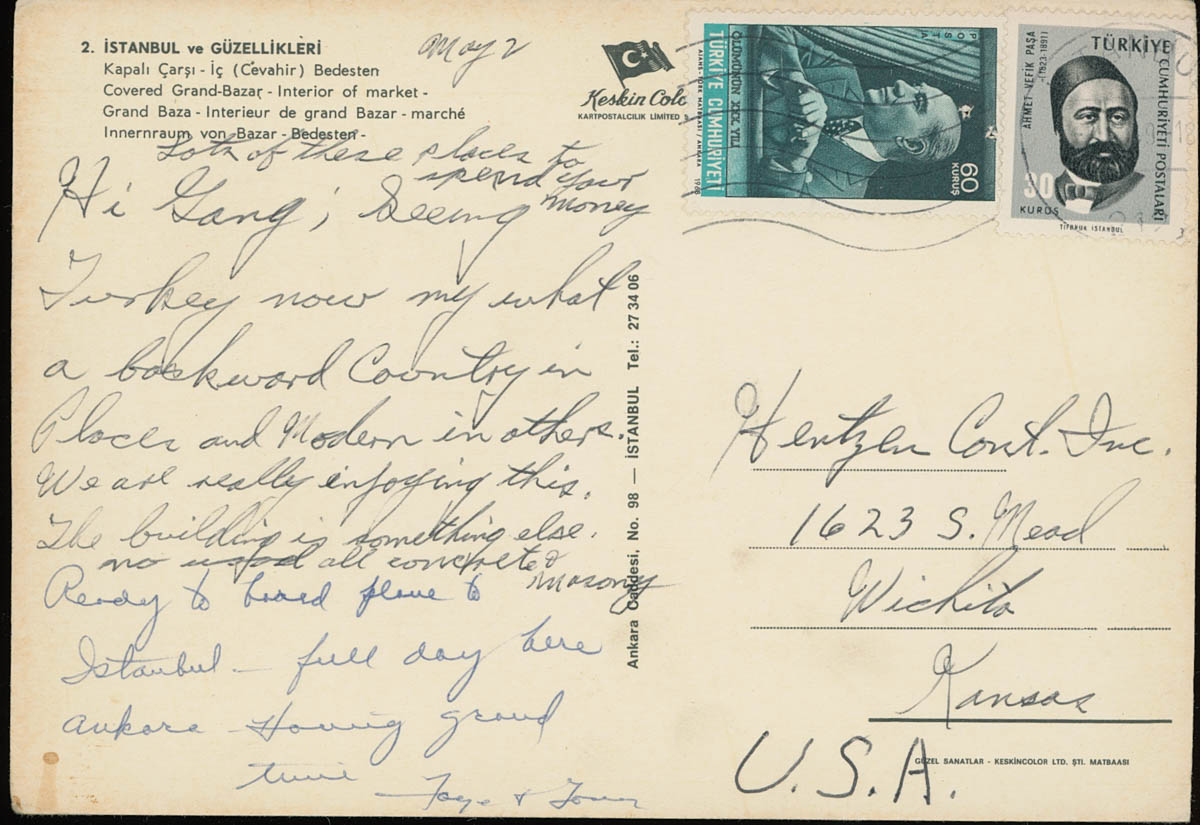 2. İSTANBUL ve GÜZELLİKLERİ
Kapalı Çarşı - İç (Cevahir) Bedesten
Covered Grand-Bazar - Interior of market -
Grand Baza - Interieur de grand Bazar - marché
Innernraum von Bazar - Bedesten -
May 2
Lots of these places to
spend your
money
Hi Gang; Seeing
Turkey now my what
a backward Country in
Places and Modern in others.
We are really enjoying this.
The building is something else.
no wood all concrete &
masonry
Ready to board plane to
Istanbul - full day here
Ankara Having grand
time
Faye &
Keskin Colo
KARTPOSTALCILIK LIMITED
Ankara Caddesi, No. 98 — İSTANBUL Tel.: 27 34 06
POSTA
ÖLÜMÜNÜN XXX. YILI
TÜRKİYE CUMHURİYETİ
60
KURUŞ
1968
TÜRKİYE CUMHURİYETİ POSTALARI
AHMET VEFİK PAŞA
(1823-1891)
30
KURUŞ
TİFDRUK İSTANBUL
Hentzen Cont. Inc.
1623 S. Mead
Wichita
Kansas
U.S.A.
GÜZEL SANATLAR - KESKİNCOLOR LTD. ŞTİ. MATBAASI